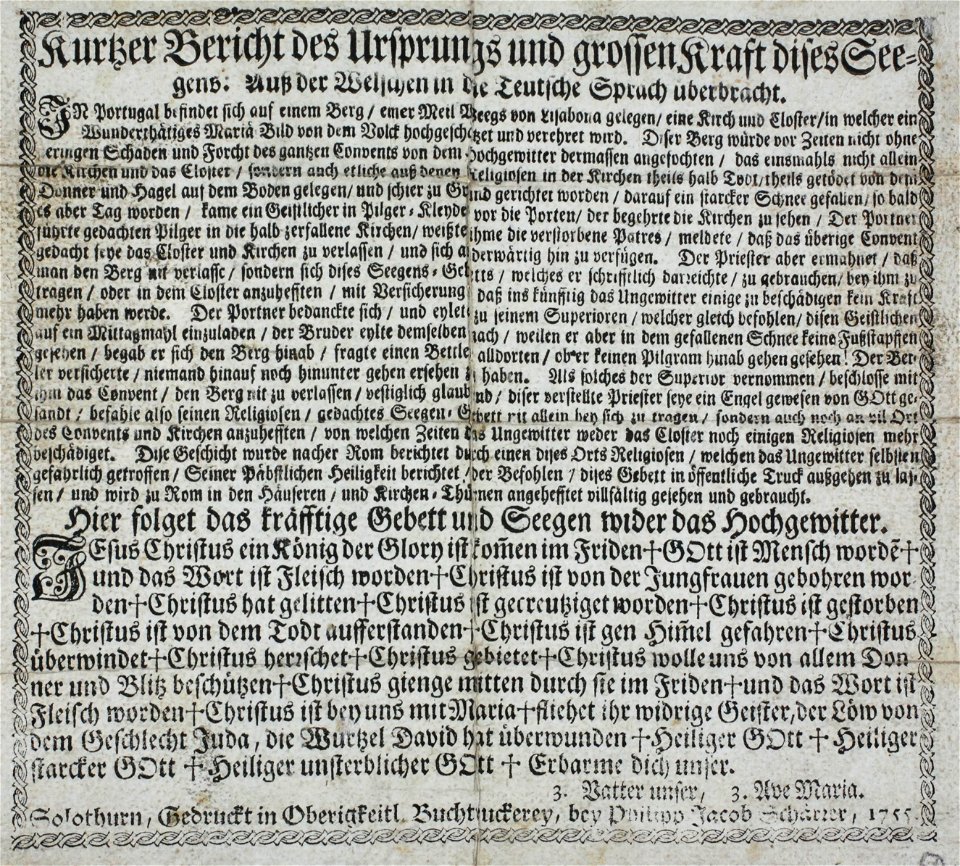 Kurtzer Bericht des Ursprungs und grossen Kraft dises See-
gens: Auß der Welschen in die Teutsche Sprach überbracht.
IN Portugal befindet sich auf einem Berg / einer Meil Weegs von Lisabona gelegen / eine Kirch und Closter / in welcher ein
Wunderthätiges Mariä Bild von dem Volck hochgeschätzt und verehret wird. Diser Berg würde vor Zeiten nicht ohne
eringen Schaden und Forcht des gantzen Convents von dem Hochgewitter dermassen angefochten / das einsmahls nicht allein
die Kirchen und das Closter / sondern auch etliche auß denen Religiosen in der Kirchen theils halb Todt / theils getödet von dem
Donner und Hagel auf dem Boden gelegen / und schier zu Grund gerichtet worden / darauf ein starcker Schnee gefallen / so bald
es aber Tag worden / kame ein Geistlicher in Pilger-Kleyder vor die Porten / der begehrte die Kirchen zu sehen / Der Portner
führte gedachten Pilger in die halb zerfallene Kirchen / weißte ihme die verstorbene Patres / meldete / daß das überige Convent
gedacht seye das Closter und Kirchen zu verlassen / und sich anderwärtig hin zu verfügen. Der Priester aber ermahnet / daß
man den Berg nit verlasse / sondern sich dises Seegens-Gebetts / welches er schrifftlich darreichte / zu gebrauchen / bey ihm zu
tragen / oder in dem Closter anzuhefften / mit Versicherung daß ins künfftig das Ungewitter einige zu beschädigen kein Krafft
mehr haben werde. Der Portner bedanckte sich / und eylete zu seinem Superioren / welcher gleich befohlen / disen Geistlichen
auf ein Mittagmahl einzuladen / der Bruder eylte demselben nach / weilen er aber in dem gefallenen Schnee keine Fußstapffen
gesehen / begab er sich den Berg hinab / fragte einen Bettler alldorten / ob er keinen Pilgram hinab gehen gesehen! Der Bet-
ler versicherte / niemand hinauf noch hinunter gehen ersehen zu haben. Als solches der Superior vernommen / beschlosse mit
ihm das Convent / den Berg nit zu verlassen / vestiglich glaubend / diser verstellte Priester seye ein Engel gewesen von GOtt ge-
sandt / befahle also seinen Religiosen / gedachtes Seegen-Gebett nit allein bey sich zu tragen / sondern auch noch an vil Ort
des Convents und Kirchen anzuhefften / von welchen Zeiten das Ungewitter weder das Closter noch einigen Religiosen mehr
beschädiget. Dise Geschicht wurde nacher Rom berichtet durch einen dises Orts Religiosen / welchen das Ungewitter selbsten
gefährlich getroffen / Seiner Päbstlichen Heiligkeit berichtet / der Befohlen / dises Gebett in öffentliche Truck außgehen zu las-
sen / und wird zu Rom in den Häuseren / und Kirchen-Thürnen angehefftet villfältig gesehen und gebraucht.
Hier folget das kräfftige Gebett und Seegen wider das Hochgewitter.
JEsus Christus ein König der Glory ist kom̄en im Friden ✝ GOtt ist Mensch wordē ✝
und das Wort ist Fleisch worden ✝ Christus ist von der Jungfrauen gebohren wor-
den ✝ Christus hat gelitten ✝ Christus ist gecreutziget worden ✝ Christus ist gestorben
✝ Christus ist von dem Todt aufferstanden ✝ Christus ist gen Him̄el gefahren ✝ Christus
überwindet ✝ Christus herrschet ✝ Christus gebietet ✝ Christus wolle uns von allem Don-
ner und Blitz beschützen ✝ Christus gienge mitten durch sie im Friden ✝ und das Wort ist
Fleisch worden ✝ Christus ist bey uns mit Maria ✝ fliehet ihr widrige Geister, der Löw von
dem Geschlecht Juda, die Wurtzel David hat überwunden ✝ Heiliger GOtt ✝ Heiliger
starcker GOtt ✝ Heiliger unsterblicher GOtt ✝ Erbarme dich unser.
3. Vatter unser, 3. Ave Maria.
Solothurn, Gedruckt in Oberigkeitl. Buchtruckerey, bey Philipp Jacob Schärer, 1755.